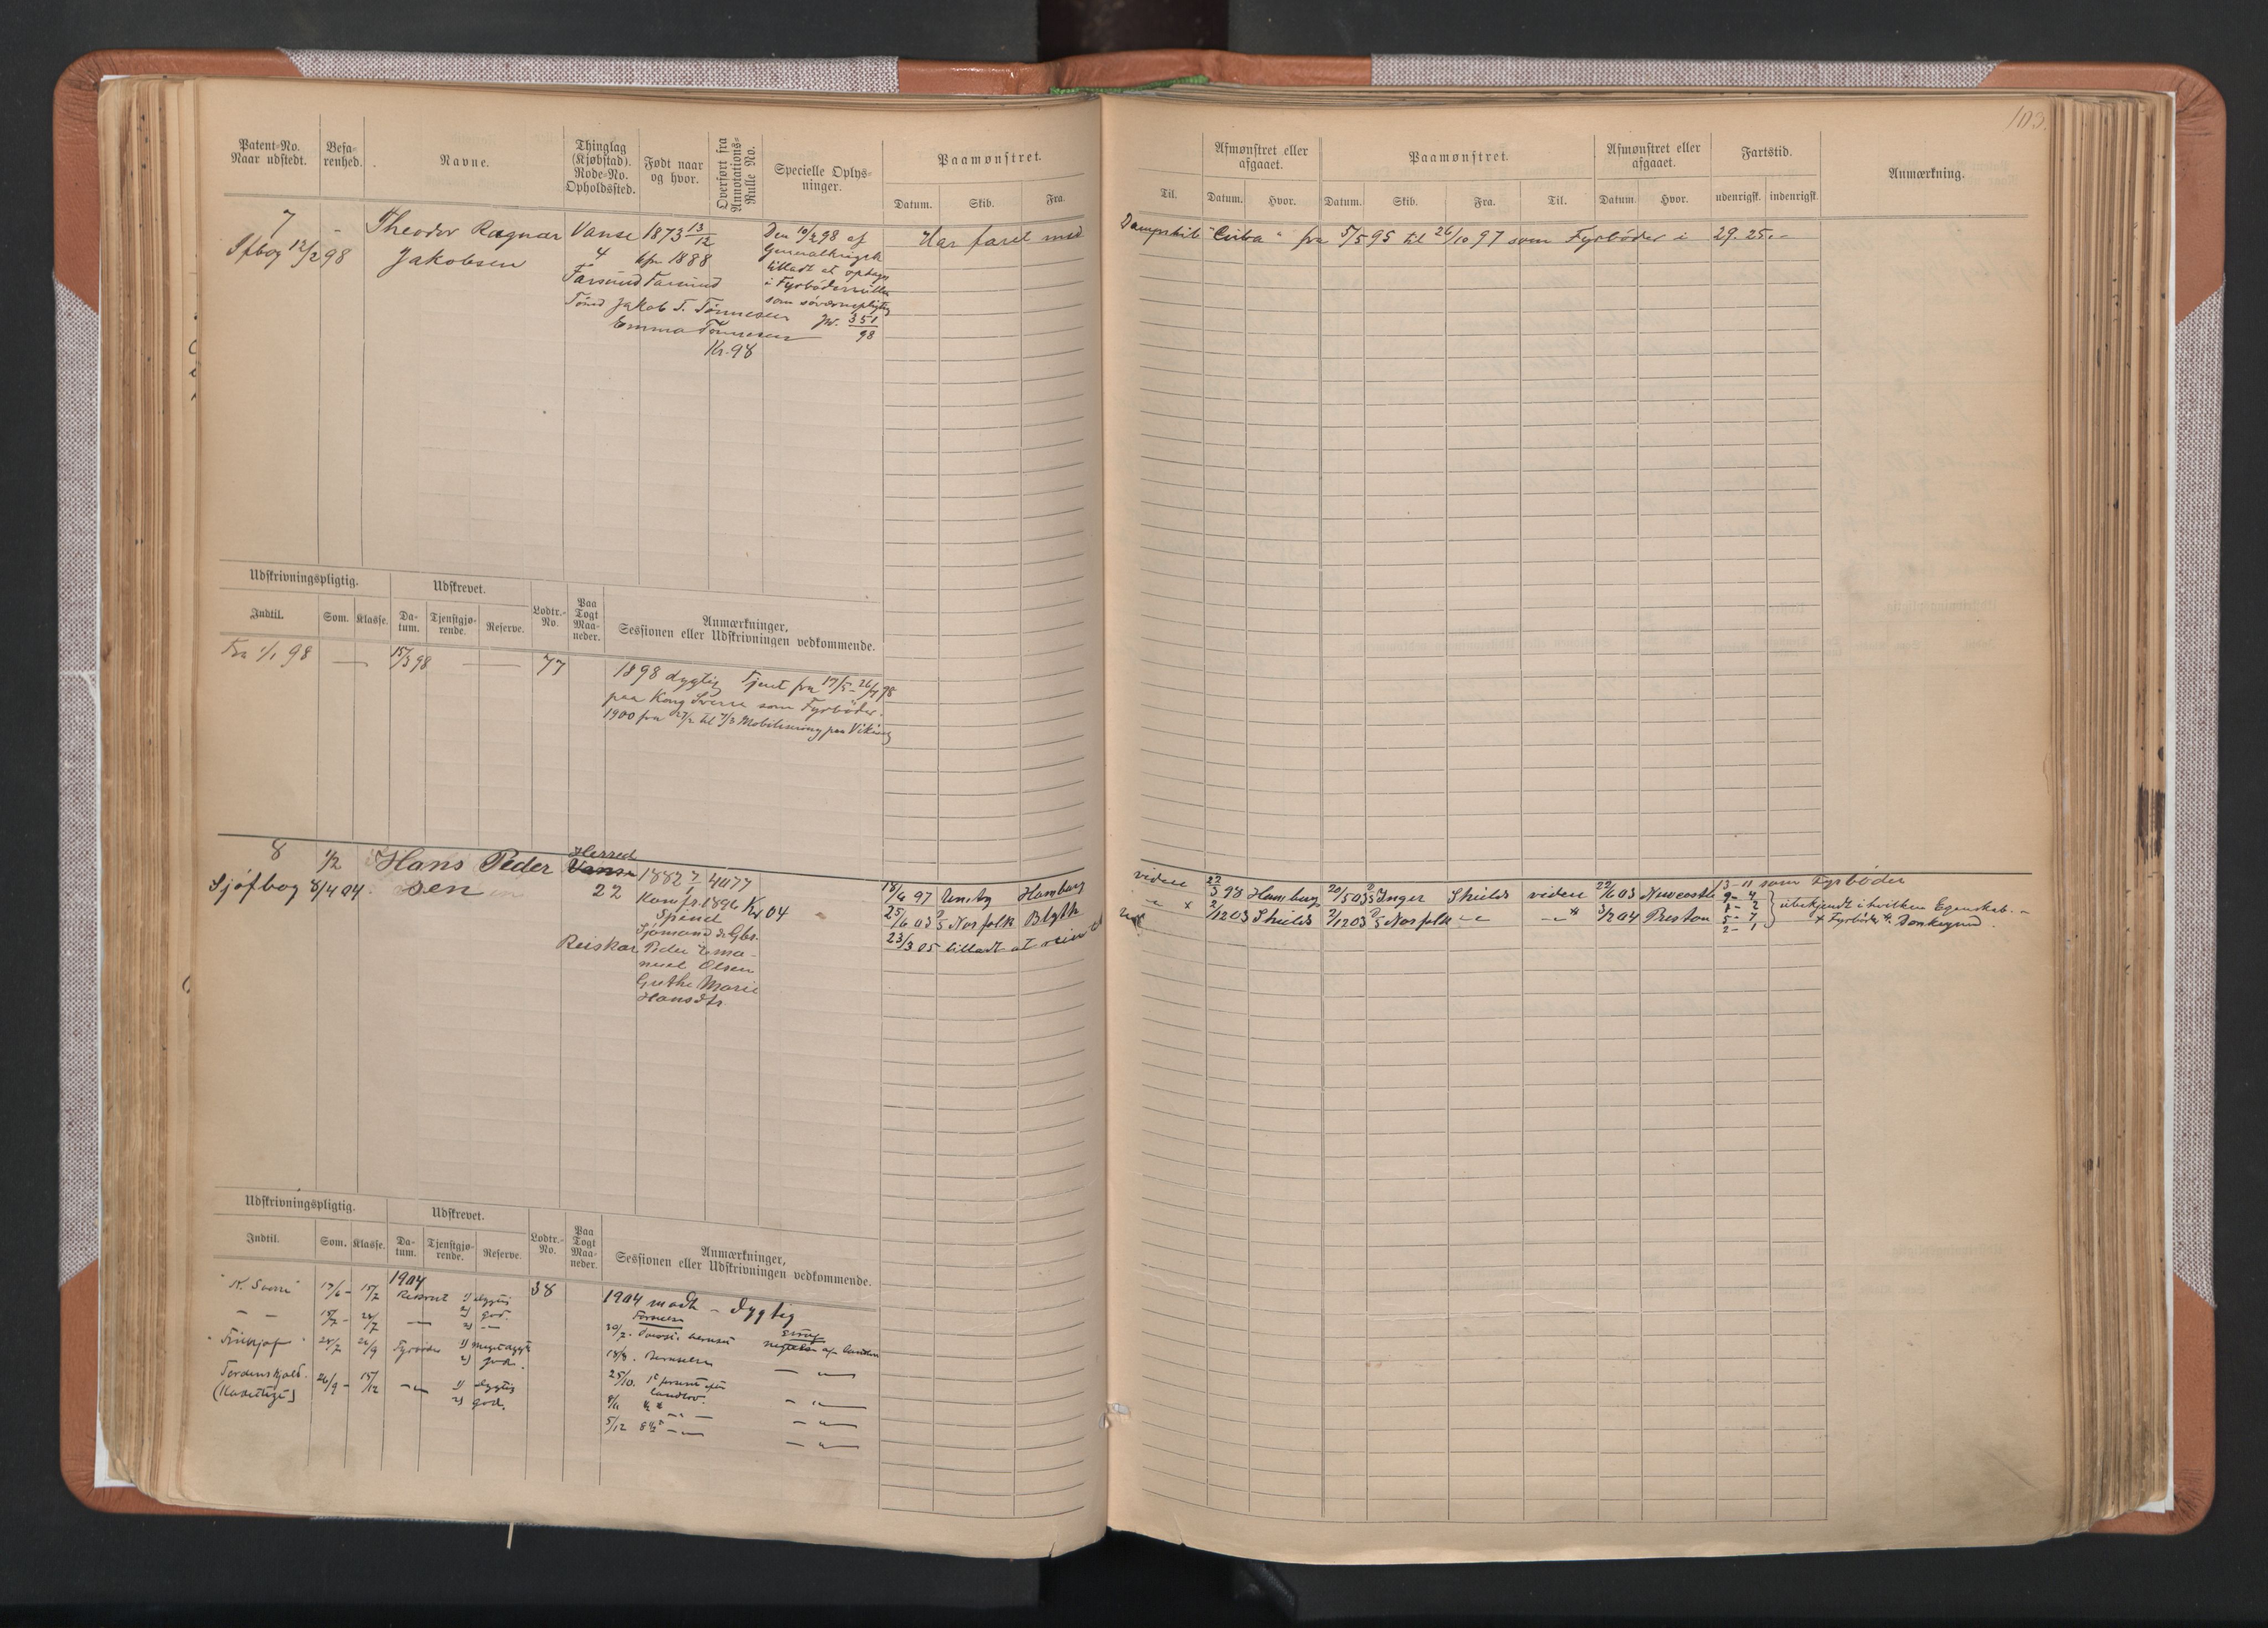 103.
Patent-No. Naar udstedt. Befa-renhed. Navne. Thinglag (Kjøbstad). Rode-No. Opholdssted. Født naar og hvor. Overført fra Annotations-Rulle No. Specielle Oplys-ninger. Paamønstret.
Datum. Skib. Fra.
Afmønstret eller afgaaet. Paamønstret. Afmønstret eller afgaaet. Fartstid. Anmærkning.
Til. Datum. Hvor. Datum. Skib. Fra. Til. Datum. Hvor. udenrigsk. indenrigsk.
7 - Theodor Ragnar Vanse 1873 13/12 Den 10/2 98 af Har faret med Dampskib "Cuba" fra 5/5 95 til 26/10 97 som Fyrbøder i 29. 25. -
Sfbog 12/2 98 Jakobsen 4 kfm 1888 Generalkrigsk
Farsund Farsund tilladt at optages
i Fyrbøderrullen
Jakob T. Tønnesen som søværnepligtig
Emma Tønnesen Jr. 351/98
Kr. 98
Udskrivningspligtig. Udskrevet. Lodtr.-No. Paa Togt Maa-neder. Anmærkninger, Sessionen eller Udskrivningen vedkommende.
Indtil. Som. Klasse. Da-tum. Tjenstgjø-rende. Reserve.
Fra 1/1 98 — 15/3 98 — — 77 1898 dygtig Tjent fra 17/5 - 26/7 98
paa Kong Sverre som Fyrbøder.
1900 fra 27/2 til 7/3 Mobilisering paa Viking
8 1/2 Hans Peder Herred Vanse 1882 7/1 4077
Sjøfbog 8/4 04. sen 22 Konfr. 1896 Kr 04
Spind
Sjømand & Gbr.
Reiskar Peder Ema-
nuel Olsen
Grethe Marie
Hansdtr.
18/6 97 Hamburg videre 22/3 98 Hamburg 20/5 03 Inger Shields videre 22/6 03 Newcastle 13 - 11 som Fyrbøder
25/6 03 Norfolk Blyth - " - x 2/12 03 Shields 3/12 03 Norfolk - " - - " - 3/2 04 Preston ubekjendt i hvilken Egenskab. -
23/3 05 tilladt at reise x Fyrbøder & Donkeymd.
9 - 4
1 - 2
5 - 7
2 - 1
Udskrivningspligtig. Udskrevet. Lodtr.-No. Paa Togt Maa-neder. Anmærkninger, Sessionen eller Udskrivningen vedkommende.
Indtil. Som. Klasse. Da-tum. Tjenstgjø-rende. Reserve.
1904 38 1904 mødt - dygtig
"K. Sverre" 17/6 - 15/7 Rekrut 1) dygtig
2) god.
- - 15/7 - 24/7 - " -
"Fridtjof" 24/7 26/9 Fyrbøder 1) meget dygtig
2) god.
Tordenskjold. 26/9 - 15/12 - " - 1) dygtig
2) god.
(Kadettogt)